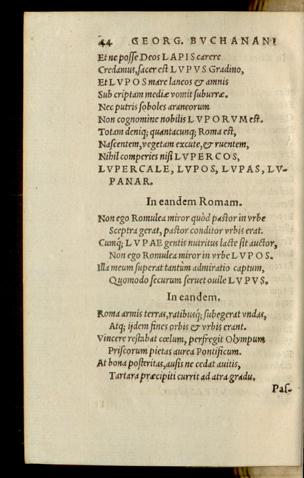 44 GEORG. BVCHANANI
Et ne posse Deos LAPIS carere
Credamus, sacer est LVPVS Gradino,
Et LVPOS mare laneos & amnis
Sub criptam mediæ vomit suburræ.
Nec putris soboles araneorum
Non cognomine nobilis LVPORVM est.
Totam deniq; quantacunq; Roma est,
Nascentem, vegetam excute, & ruentem,
Nihil comperies nisi LVPERCOS,
LVPERCALE, LVPOS, LVPAS, LV-
PANAR.
In eandem Romam.
Non ego Romulea miror quòd pastor in vrbe
Sceptra gerat, pastor conditor vrbis erat.
Cumq; LVPAE gentis nutritus lacte sit auctor,
Non ego Romulea miror in vrbe LVPOS.
Illa meum superat tantùm admiratio captum,
Quomodo securum seruet ouile LVPVS.
In eandem.
Roma armis terras, ratibusq; subegerat vndas,
Atq; ijdem fines orbis & vrbis erant.
Vincere restabat cœlum, perfregit Olympum
Priscorum pietas aurea Pontificum.
At bona posteritas, ausis ne cedat auitis,
Tartara præcipiti currit ad atra gradu.
Pas-